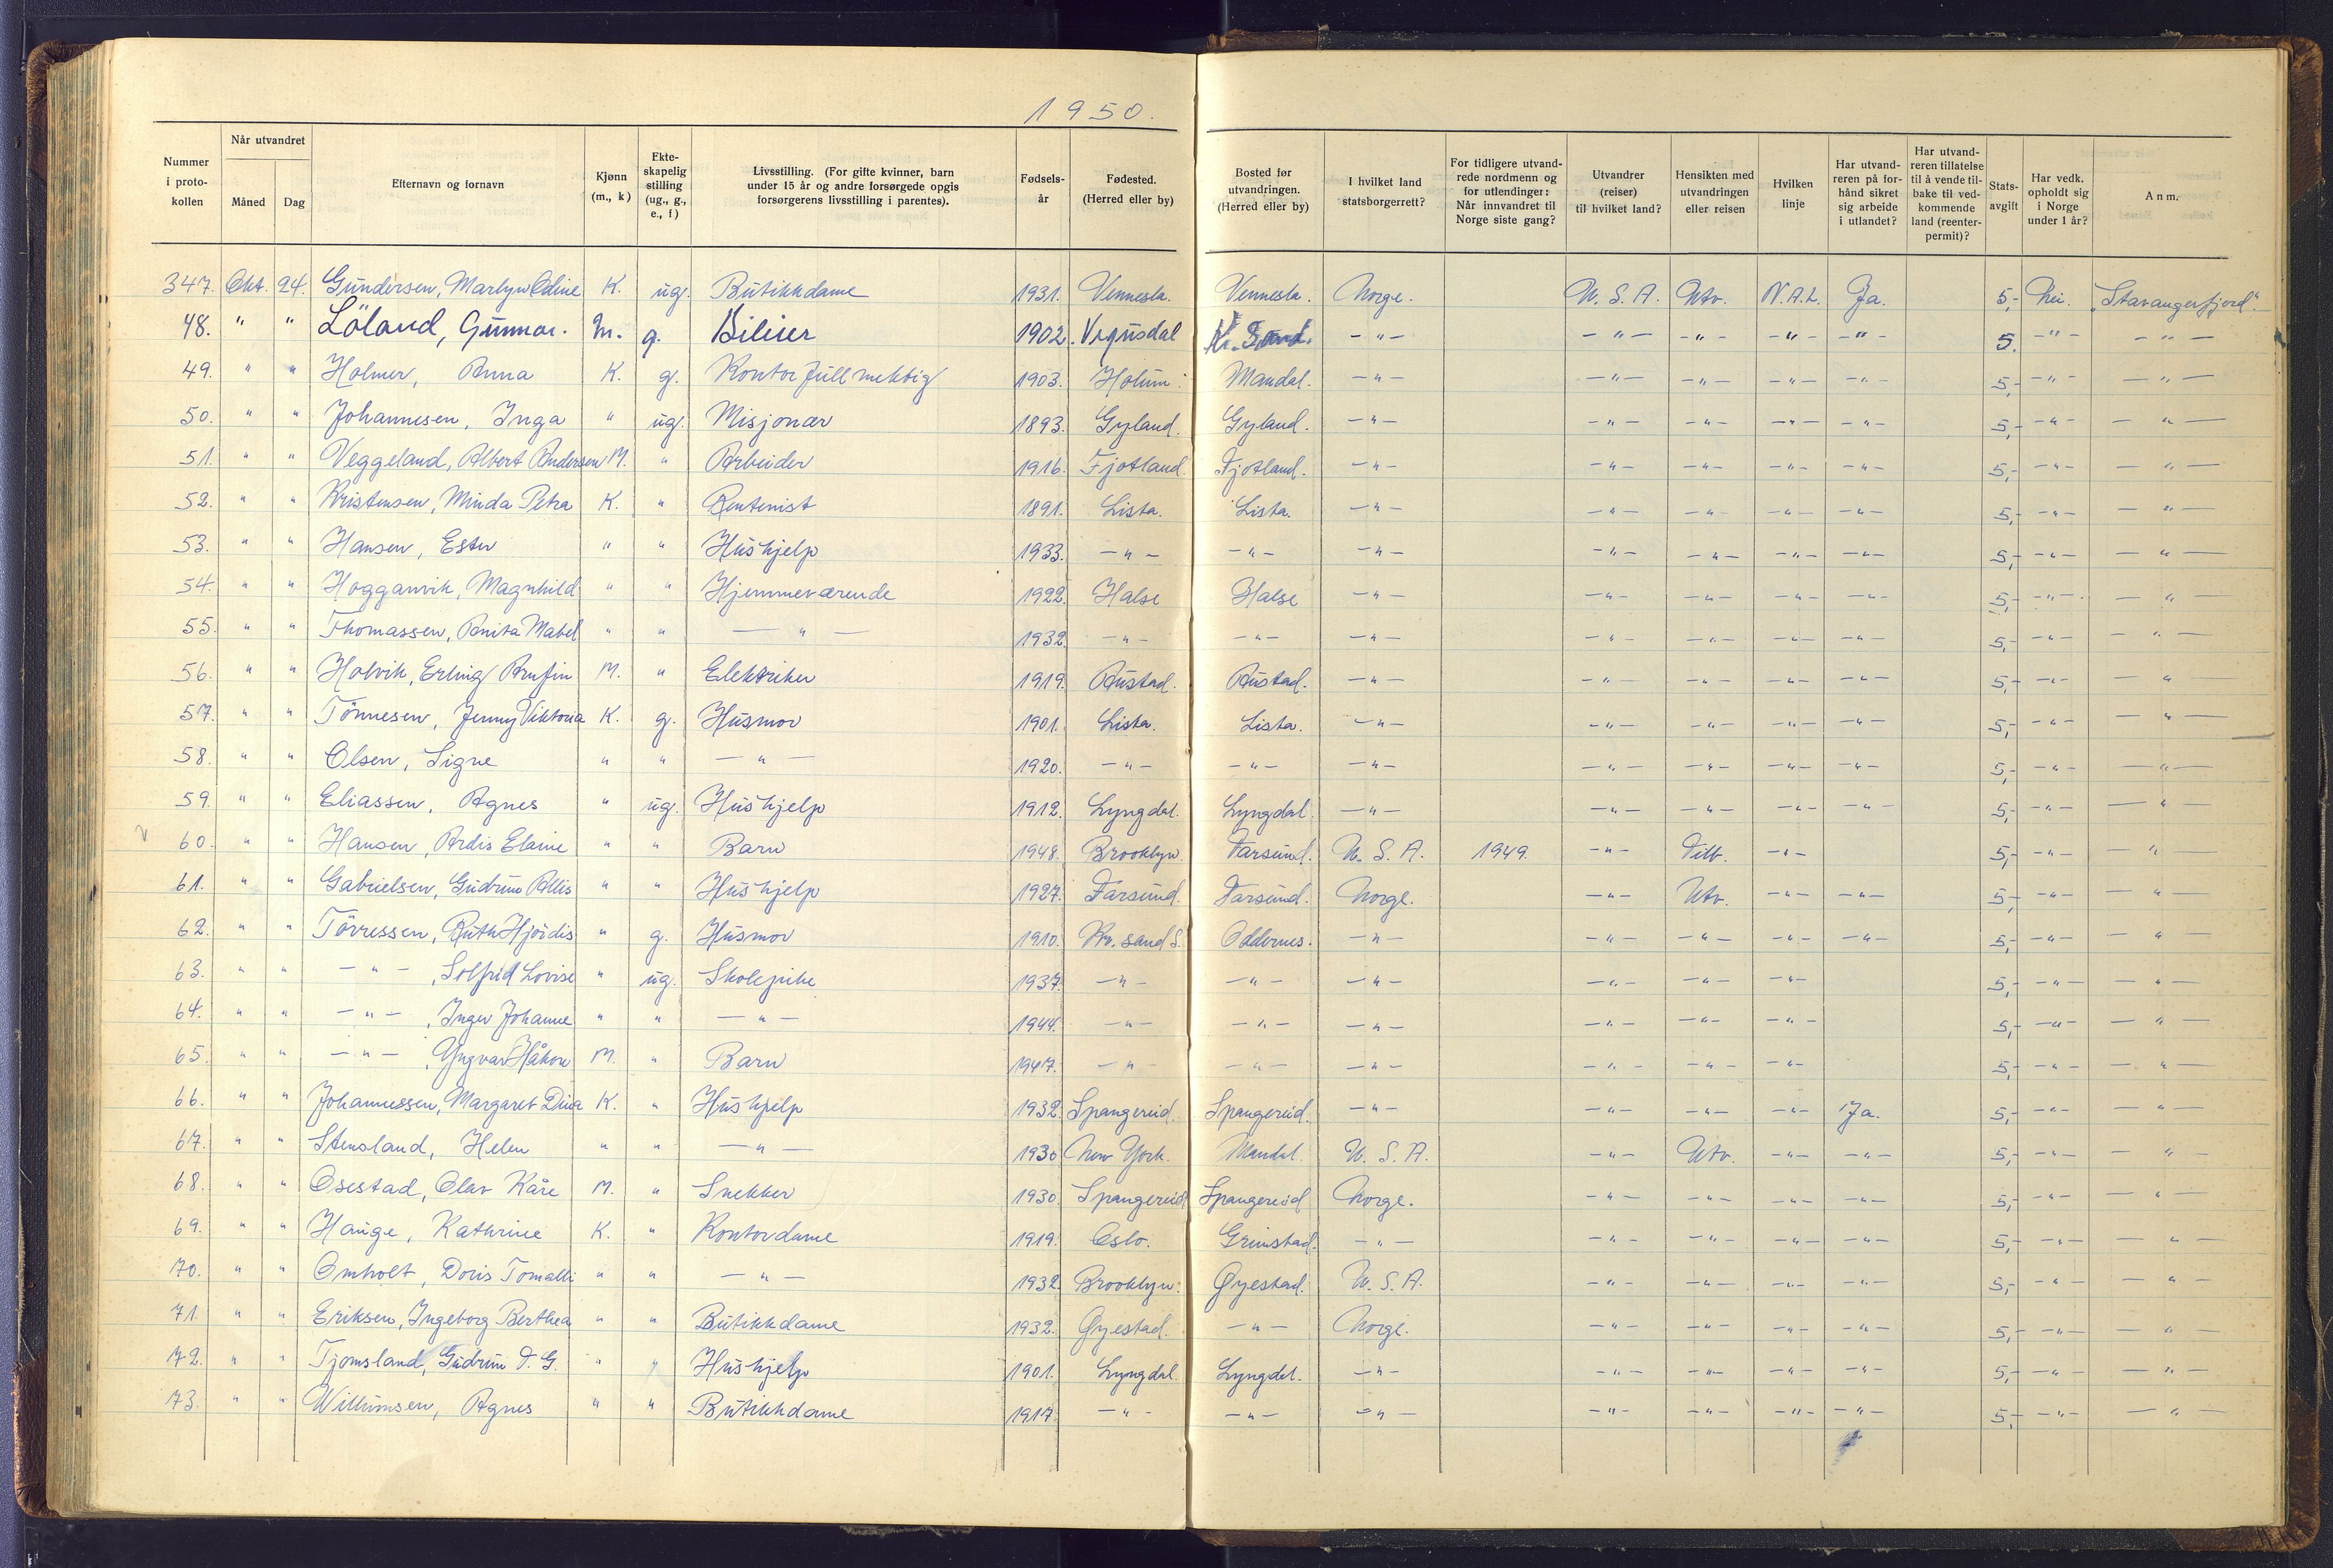 1950.
Nummer i protokollen | Når utvandret Måned Dag | Efternavn og fornavn | Kjønn (m., k) | Ekteskapelig stilling (ug., g., e., f) | Livsstilling. (For gifte kvinner, barn under 15 år og andre forsørgede opgis forsørgerens livsstilling i parentes). | Fødselsår | Fødested. (Herred eller by) | Bosted før utvandringen. (Herred eller by) | I hvilket land statsborgerrett? | For tidligere utvandrede nordmenn og for utlendinger: Når innvandret til Norge siste gang? | Utvandrer (reiser) til hvilket land? | Hensikten med utvandringen eller reisen | Hvilken linje | Har utvandreren på forhånd sikret sig arbeide i utlandet? | Har utvandreren tillatelse til å vende tilbake til vedkommende land (reenterpermit)? | Statsavgift | Har vedk. opholdt sig i Norge under 1 år? | Anm.
347. Okt. 24. Gundersen, Marlyn Odine K. ug. Butikkdame 1931. Vennesla. Vennesla. Norge. U.S.A. Utv. N.A.L. Ja. 5,- Nei. "Stavangerfjord".
48. " " Löland, Gunnar. M. g. Bileier 1902. Vegusdal Kr. Sand. -"- -"- -"- -"- -"- 5. -"- -"-
49. " " Holmer, Anna K. g. Kontorfullmektig 1903. Holum. Mandal. -"- -"- -"- -"- -"- 5,- -"- -"-
50. " " Johannesen, Inga " ug. Misjonær 1893. Gyland. Gyland. -"- -"- -"- -"- -"- 5,- -"- -"-
51. " " Veggeland, Albert Andersen M. " Arbeider 1916. Fjotland. Fjotland. -"- -"- -"- -"- -"- 5,- -"- -"-
52. " " Kristensen, Minda Petra K. " Rentenist 1891. Lista. Lista. -"- -"- -"- -"- -"- 5,- -"- -"-
53. " " Hansen, Ester " " Hushjelp 1933. -"- -"- -"- -"- -"- -"- -"- 5,- -"- -"-
54. " " Hogganvik, Magnhild " " Hjemmeværende 1922. Halse Halse -"- -"- -"- -"- -"- 5,- -"- -"-
55. " " Thomassen, Anita Mabel " " -"- 1932. -"- -"- -"- -"- -"- -"- -"- 5,- -"- -"-
56. " " Holvik, Erling Arnfin M. " Elektriker 1919. Austad. Austad. -"- -"- -"- -"- -"- 5,- -"- -"-
57. " " Tönnesen, Jenny Viktoria K. g. Husmor 1901. Lista. Lista. -"- -"- -"- -"- -"- 5,- -"- -"-
58. " " Olsen, Signe " " -"- 1920. -"- -"- -"- -"- -"- -"- -"- 5,- -"- -"-
59. " " Eliassen, Agnes " ug. Hushjelp 1912. Lyngdal. Lyngdal. -"- -"- -"- -"- -"- 5,- -"- -"-
60. " " Hansen, Ardis Elaine " " Barn 1948. Brooklyn. Farsund. U.S.A. 1949. -"- Tilb. -"- 5,- -"- -"-
61. " " Gabrielsen, Gudrun Allis " " Hushjelp 1927. Farsund. Farsund. Norge. -"- Utv. -"- -"- 5,- -"- -"-
62. " " Törressen, Ruth Hjördis " g. Husmor 1910. Kr.sand S. Oddernes. -"- -"- -"- -"- -"- 5,- -"- -"-
63. " " -"- , Solfrid Lovise " ug. Skolepike 1937. -"- -"- -"- -"- -"- -"- 5,- -"- -"-
64. " " -"- , Inger Johanne " " -"- 1944. -"- -"- -"- -"- -"- -"- 5,- -"- -"-
65. " " -"- , Yngvar Håkon M. " Barn 1947. -"- -"- -"- -"- -"- -"- 5,- -"- -"-
66. " " Johannessen, Margaret Dina K. " Hushjelp 1932. Spangereid. Spangereid. -"- -"- -"- -"- Ja. 5,- -"- -"-
67. " " Stensland, Helen " " -"- 1930 New York. Mandal. U.S.A. -"- Utv. -"- -"- 5,- -"- -"-
68. " " Osestad, Olav Kåre M. " Snekker 1930. Spangereid Spangereid Norge. -"- -"- -"- -"- 5,- -"- -"-
69. " " Hauge, Kathrine K. " Kontordame 1919. Oslo. Grimstad. -"- -"- -"- -"- -"- 5,- -"- -"-
70. " " Omholt, Doris " " -"- 1932. Brooklyn. Øyestad. U.S.A. -"- -"- -"- -"- 5,- -"- -"-
71. " " Eriksen, Ingeborg Berthea " " Butikkdame 1932. Øyestad. -"- Norge. -"- -"- -"- -"- 5,- -"- -"-
72. " " Tjomsland, Gudrun T. G. " " Hushjelp 1901. Lyngdal. Lyngdal. -"- -"- -"- -"- -"- 5,- -"- -"-
73. " " Willumsen, Agnes " " Butikkdame 1917. -"- -"- -"- -"- -"- -"- -"- 5,- -"- -"-